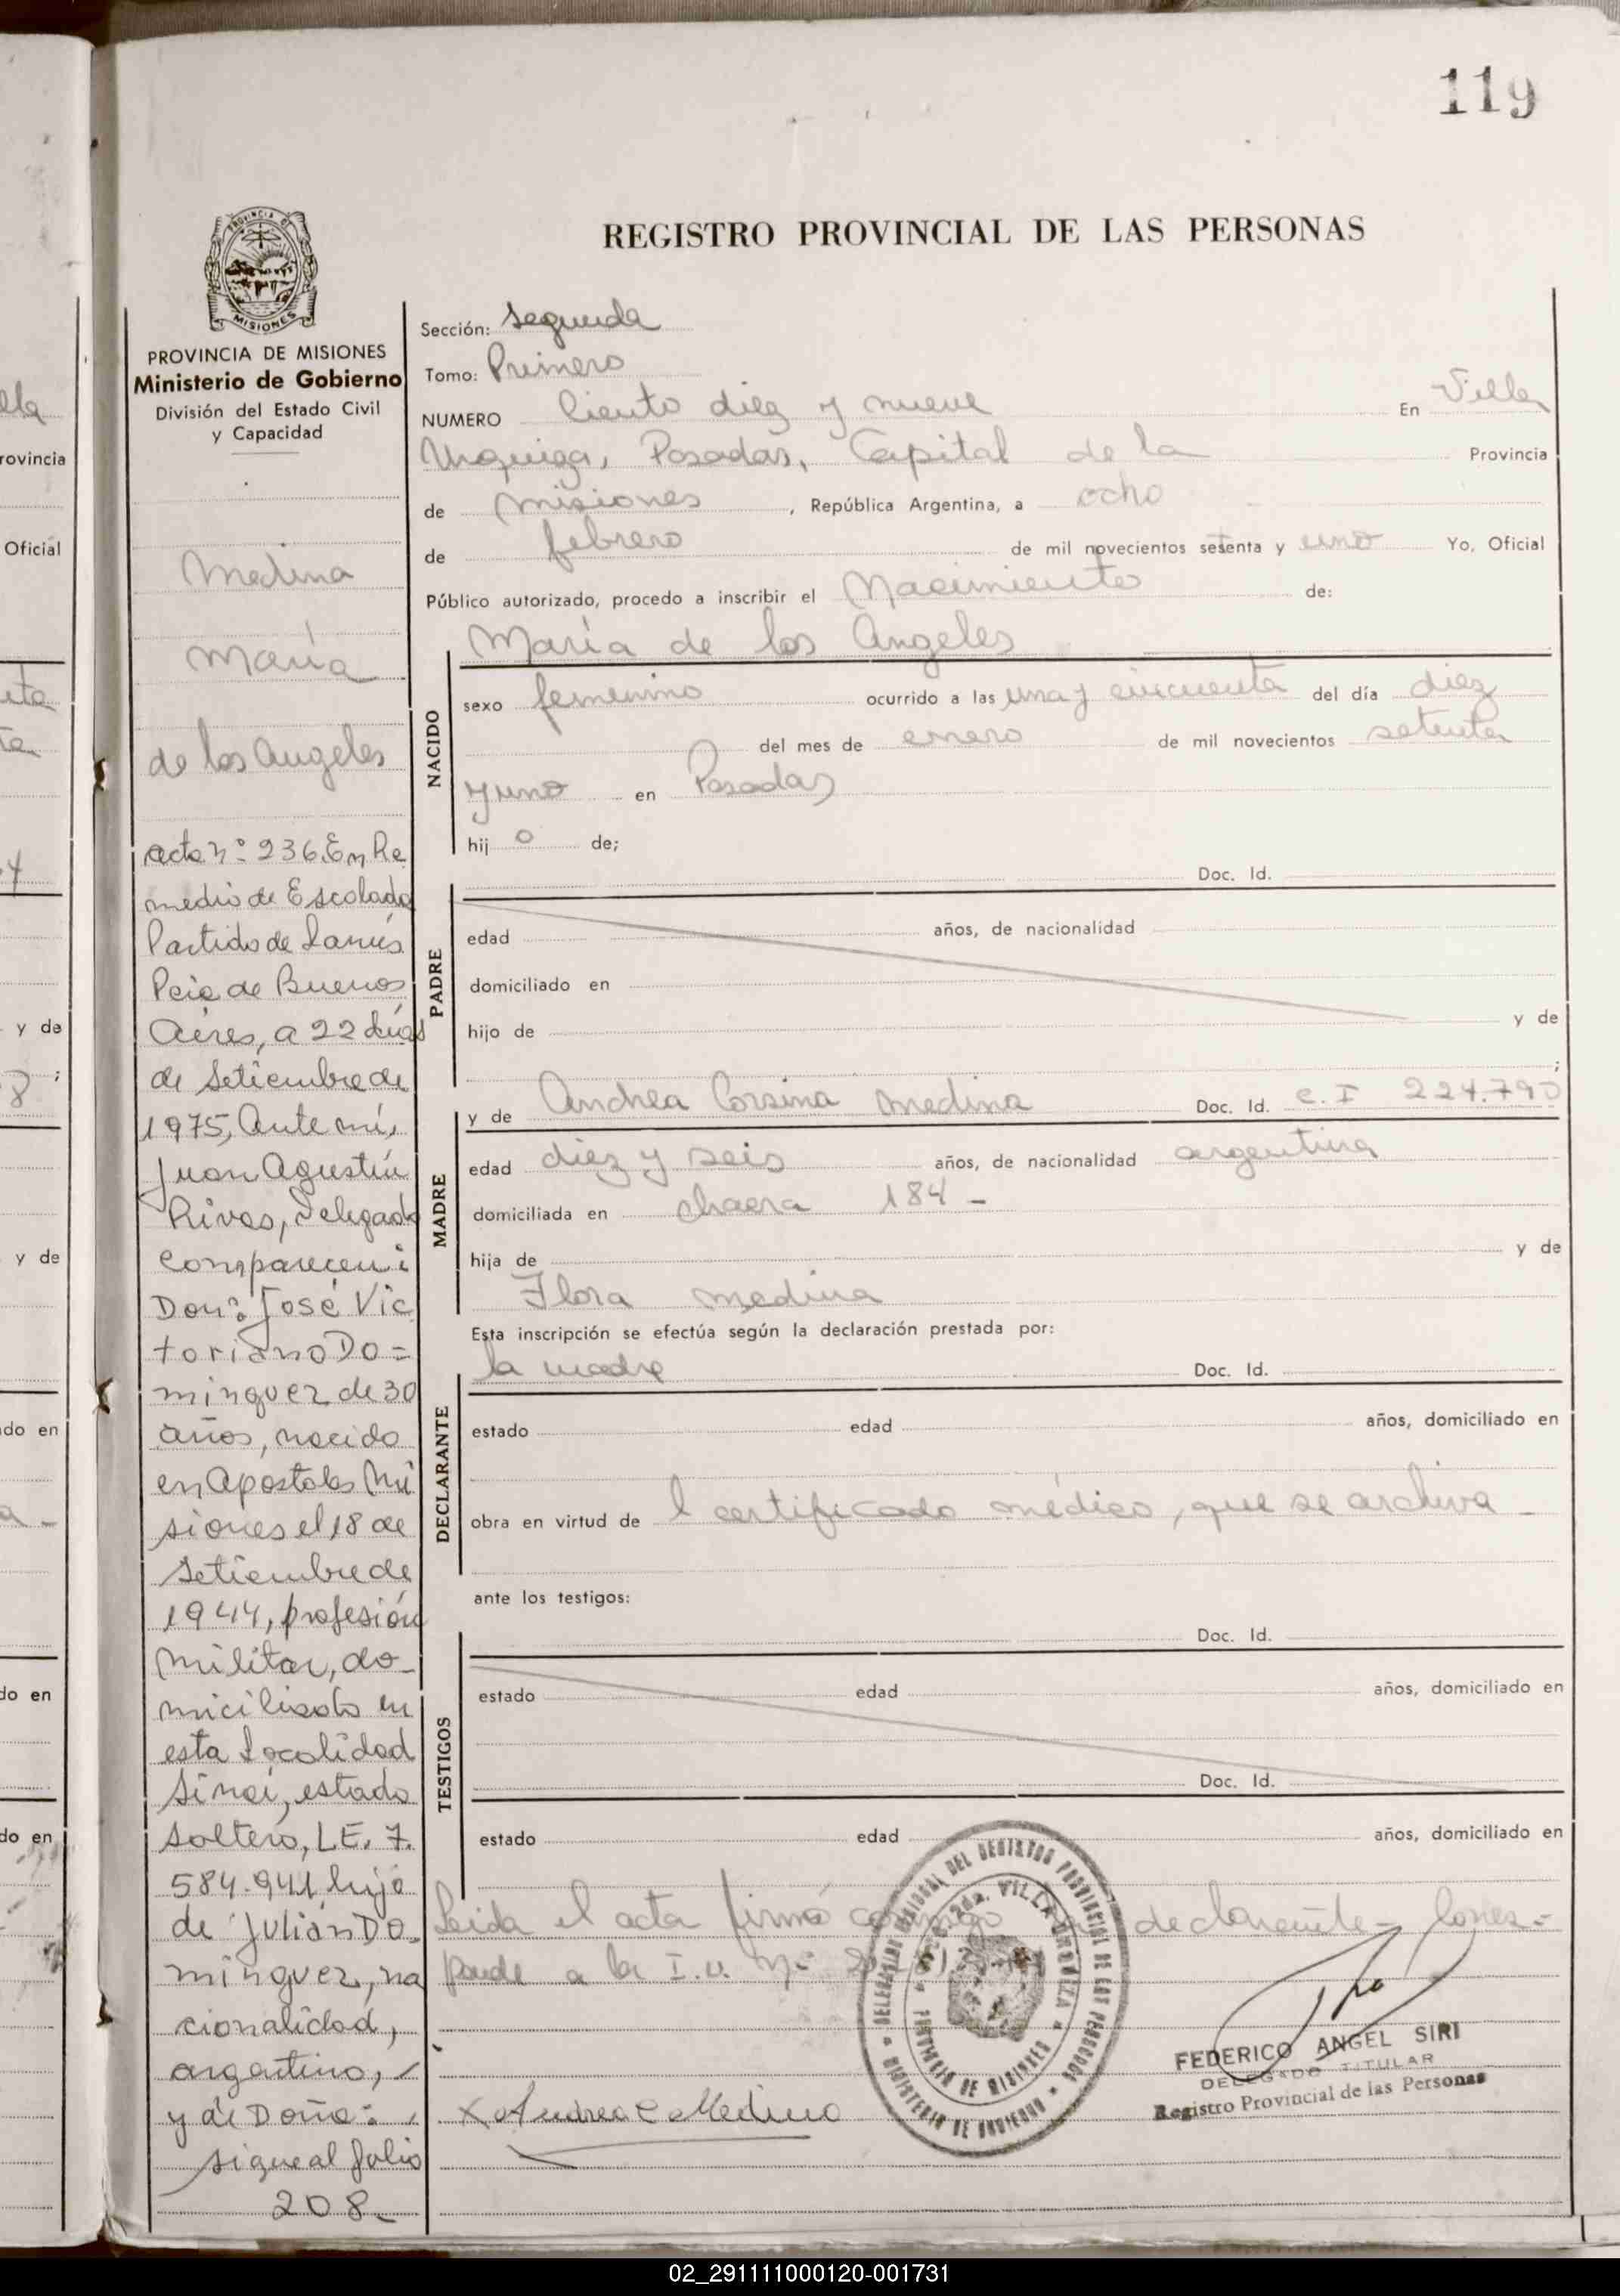 119
PROVINCIA DE
MISIONES
PROVINCIA DE MISIONES
Ministerio de Gobierno
División del Estado Civil
y Capacidad
Medina
María
de los Angeles
acta nº 236. En Re
medio de Escalada
Partido de Lanús
Pcia de Buenos
Aires, a 22 días
de Setiembre de
1975, Ante mí,
Juan Agustín
Rivas, Delegado
comparecen:
Don: José Vic
toriano Do=
minguez de 30
años, nacido
en Apostoles Mi
siones el 18 de
Setiembre de
1944, profesión
militar, do-
miciliado en
esta Localidad
Sinaí, estado
soltero, LE. 7.
584.941 hijo
de Julián Do-
minguez, na
cionalidad,
argentino, /
y de Doña:
sigue al folio
208-
REGISTRO PROVINCIAL DE LAS PERSONAS
Sección: Segunda
Tomo: Primero
NUMERO Ciento diez y nueve En Villa
Urquiza, Posadas, Capital de la Provincia
de Misiones, República Argentina, a ocho
de febrero de mil novecientos setenta y uno Yo, Oficial
Público autorizado, procedo a inscribir el Nacimiento de:
María de los Angeles
NACIDO
sexo femenino ocurrido a las una y cincuenta del día diez
del mes de enero de mil novecientos setenta
y uno en Posadas
hij o de;
Doc. Id.
PADRE
edad años, de nacionalidad
domiciliado en
hijo de y de
;
y de Andrea Corsina Medina Doc. Id. C.I 224.790
MADRE
edad diez y seis años, de nacionalidad argentina
domiciliada en chacra 184 -
hija de y de
Flora Medina
Esta inscripción se efectúa según la declaración prestada por:
la madre Doc. Id.
DECLARANTE
estado edad años, domiciliado en
obra en virtud de l certificado médico, que se archiva -
ante los testigos:
Doc. Id.
TESTIGOS
estado edad años, domiciliado en
Doc. Id.
estado edad años, domiciliado en
Leida el acta firmó conmigo declarante - Corres=
ponde a la I.U. Nº
VILLA URQUIZA
PROVINCIA DE MISIONES
MINISTERIO DE GOBIERNO
X Andrea C Medina
FEDERICO ANGEL SIRI
DELEGADO TITULAR
Registro Provincial de las Personas
ovincia
Oficial
y de
y de
do en
do en
do en
02_291111000120-001731